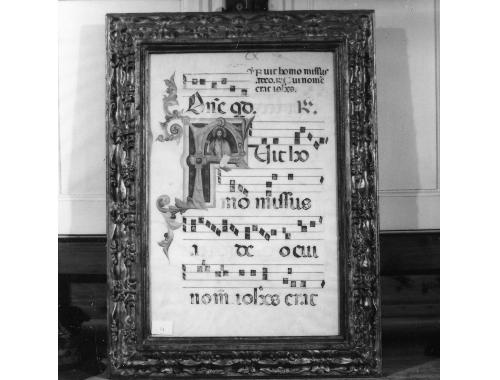 CX
℣ Fuit homo missus
a deo. ℟. Cui nomē
erat ioħes.
Dn̄e qd. ℟.
Fuit ho
mo missus
a de o cui
nom̄ ioħes erat